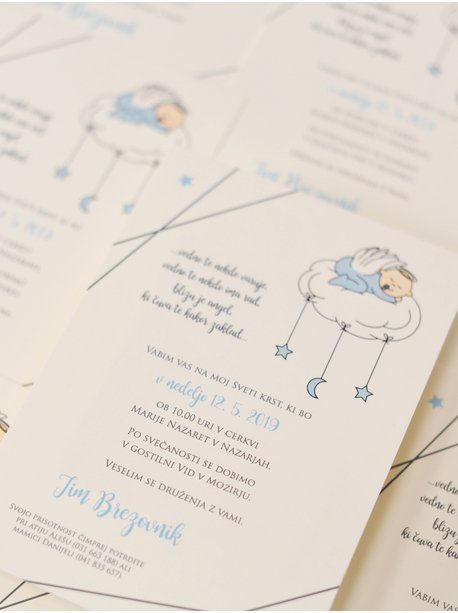 ...vedno te nekdo varuje,
vedno te nekdo ima rad,
blizu je angel,
ki čuva te kakor zaklad...
Vabim vas na moj sveti krst, ki bo
v nedeljo 12. 5. 2019
ob 10.00 uri v cerkvi
Marije Nazaret v Nazarjah.
Po svečanosti se dobimo
v gostilni Vid v Mozirju.
Veselim se druženja z vami.
Tim Brezovnik
Svojo prisotnost čimprej potrdite
pri atiju Alešu (031 663 188) ali
mamici Danijeli (041 835 657).